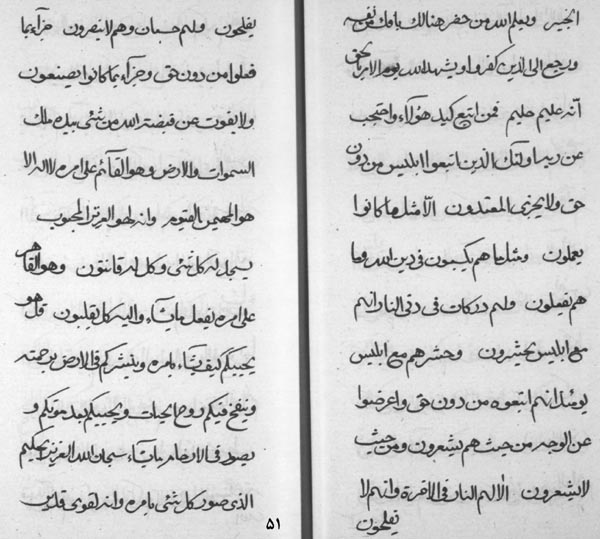 الخبير ويعلم الله من حضر هنالك بافك من نفسه
ويرجع الى الذين كفروا ويشهد الله يوم الامر بالحق
انه عليم حليم فمن اتبع كيد هؤلاء واحتجب
عن ربه اولئك الذين اتبعوا ابليس من دون
حق ولا يجزى المعتدون الا مثل ما كانوا
يعملون ومثل ما هم يكسبون فى دين الله وما
هم يفعلون ولهم دركات فى النار انهم
مع ابليس يحشرون وحشرهم مع ابليس
يومئذ انهم اتبعوه من دون حق واعرضوا
عن الوجه من حيث هم يشعرون ومن حيث
لا يشعرون الا لهم النار فى الاخرة وانهم لا
يفلحون
يفلحون ولهم حسبان وهم لا ينصرون جزآء بما
فعلوا من دون حق وجزآء بما كانوا يصنعون
ولا يفوت عن قبضته الله من شئ بيده ملك
السموات والارض وهو القآئم على امره لا اله الا
هو المهيمن القيوم وانه لهو العزيز المحبوب
يسجد له كل شئ وكل له قانتون وهو القاهر
على امره يفعل ما يشآء واليه كل يقلبون قل هو
يحييكم كيف يشآء بامره وينشركم فى الارض برحمته
وينفخ فيكم روح الحيات ويحييكم بعد موتكم و
يصور فى الارحام ما يشآء سبحان الله العزيز الحكيم
الذى صور كل شئ بامره وانه لقوى قدير
۵۱